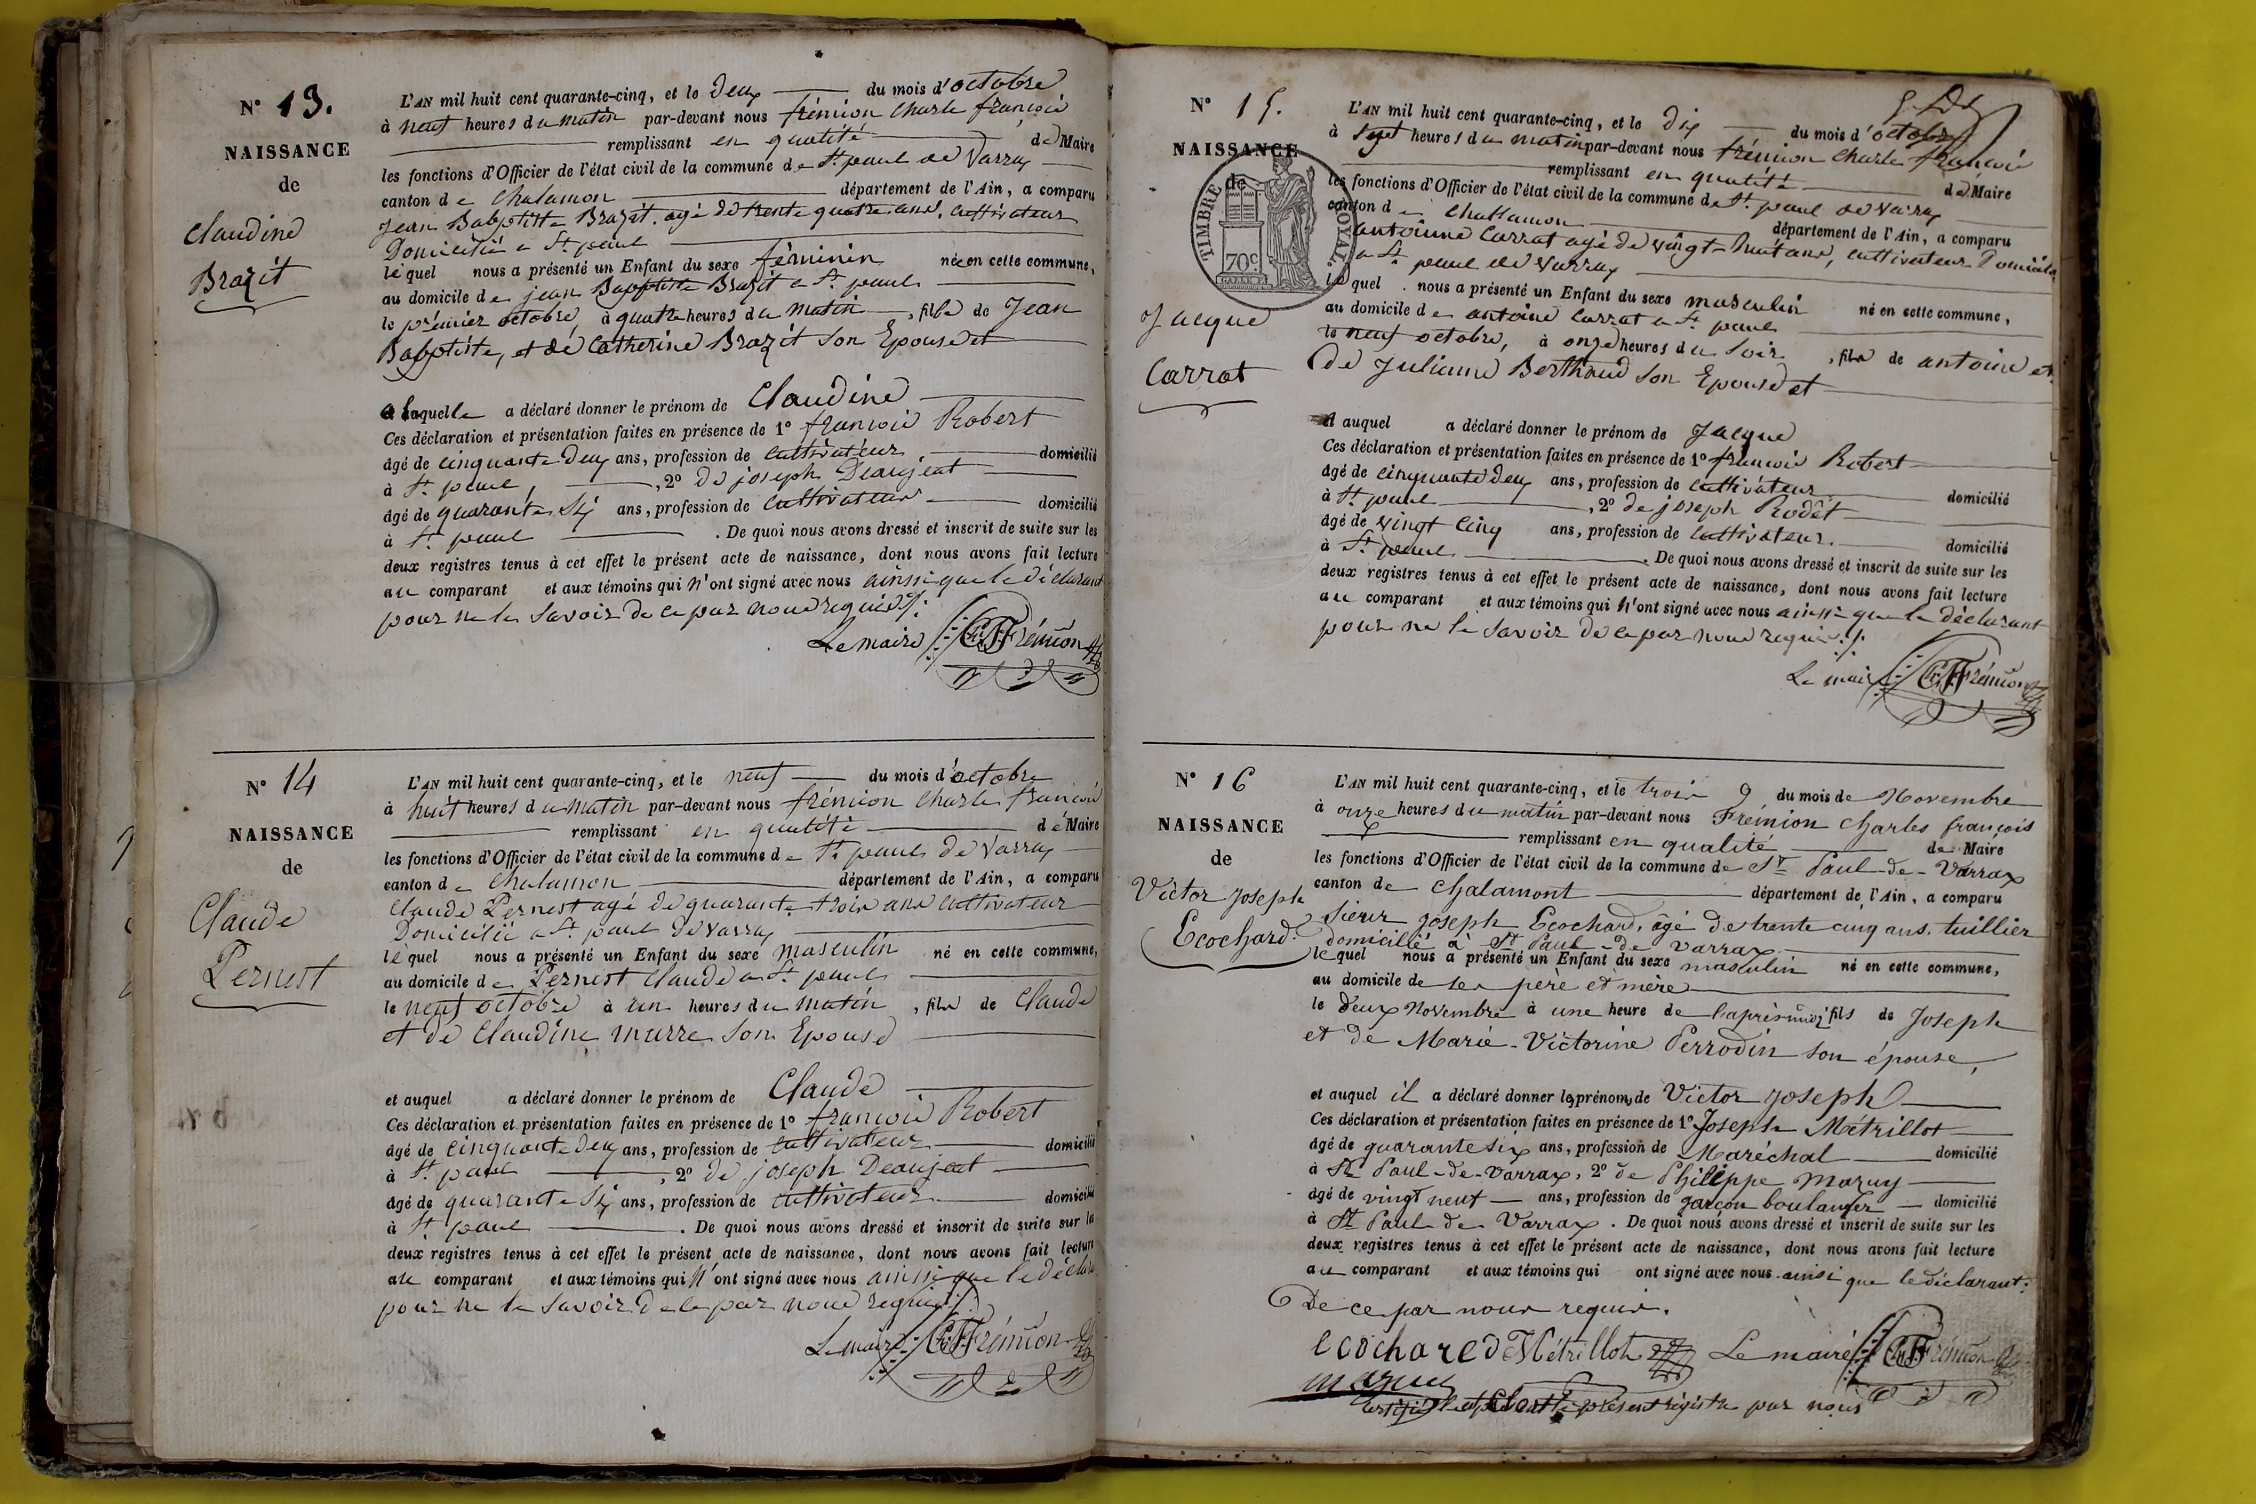 N° 13.
NAISSANCE
de
Claudine
Brazit
L'AN mil huit cent quarante-cinq, et le deux du mois d'octobre
à neuf heures du matin par-devant nous frémion Charle françois
remplissant en qualité de Maire
les fonctions d'Officier de l'état civil de la commune de St. paul de Varray
canton de Chalamon département de l'Ain, a comparu
Jean Babptiste Brazit. agé de trente quatre ans. Cultivateur
Domicilié a St. paul
lequel nous a présenté un Enfant du sexe féminin née en cette commune,
au domicile de jean Babptiste Brazit a St. paul
le prémier octobre, à quatre heures du matin, fille de Jean
Babptiste, et de Catherine Brazit son Epouse et
a laquelle a déclaré donner le prénom de Claudine
Ces déclaration et présentation faites en présence de 1° françois Robert
âgé de cinquante deux ans, profession de cultivateur domicilié
à St. paul, 2° de joseph Deaujeat
âgé de quarante six ans, profession de cultivateur domicilié
à St. paul. De quoi nous avons dressé et inscrit de suite sur les
deux registres tenus à cet effet le présent acte de naissance, dont nous avons fait lecture
au comparant et aux témoins qui n'ont signé avec nous ainssi que le déclarant
pour ne le savoir de ce par nous requis
Le maire C.F. Frémion
N° 14
NAISSANCE
de
Claude
Pernest
L'AN mil huit cent quarante-cinq, et le neuf du mois d'octobre
à huit heures du matin par-devant nous frémion Charle françois
remplissant en qualité de Maire
les fonctions d'Officier de l'état civil de la commune de St. paul de Varray
canton de Chalamon département de l'Ain, a comparu
Claude Pernest agé de quarante trois ans cultivateur
Domicilié a St. paul de Varray
lequel nous a présenté un Enfant du sexe masculin né en cette commune,
au domicile de Pernest Claude a St. paul
le neuf octobre à un heures du matin, fils de Claude
et de Claudine murre son Epouse
et auquel a déclaré donner le prénom de Claude
Ces déclaration et présentation faites en présence de 1° françois Robert
âgé de cinquante deux ans, profession de cultivateur domicilié
à St. paul, 2° de joseph Deaujeat
âgé de quarante six ans, profession de cultivateur domicilié
à St. paul. De quoi nous avons dressé et inscrit de suite sur les
deux registres tenus à cet effet le présent acte de naissance, dont nous avons fait lecture
au comparant et aux témoins qui n'ont signé avec nous ainssi que le déclara
pour ne le savoir de ce par nous requis
Le maire C.F. Frémion
N° 15.
NAISSANCE
de
TIMBRE ROYAL.
70c
Jacque
Carrat
L'AN mil huit cent quarante-cinq, et le dix du mois d'octobre
à sept heures du matin par-devant nous frémion Charle françois
remplissant en qualité de Maire
les fonctions d'Officier de l'état civil de la commune de St. paul de Varray
canton de Challamon département de l'Ain, a comparu
antoinne Carrat agé de vingt-huit ans, cultivateur Domicilié
a St. paul de Varray
lequel nous a présenté un Enfant du sexe masculin né en cette commune,
au domicile de antoine Carrat a St. paul
le neuf octobre, à onze heures du soir, fils de antoine et
de Julienne Berthaud son Epouse et
auquel a déclaré donner le prénom de Jacque
Ces déclaration et présentation faites en présence de 1° françois Robert
âgé de cinquante deux ans, profession de cultivateur domicilié
à St. paul, 2° de joseph Rodet
âgé de vingt cinq ans, profession de cultivateur. domicilié
à St. paul. De quoi nous avons dressé et inscrit de suite sur les
deux registres tenus à cet effet le présent acte de naissance, dont nous avons fait lecture
au comparant et aux témoins qui n'ont signé avec nous ainssi que le déclarant
pour ne le savoir de ce par nous requis
Le maire C.F. Frémion
N° 16
NAISSANCE
de
Victor Joseph
Ecochard.
L'AN mil huit cent quarante-cinq, et le trois du mois de Novembre
à onze heures du matin par-devant nous Frémion Charles françois
remplissant en qualité de Maire
les fonctions d'Officier de l'état civil de la commune de St Paul-de-Varrax
canton de Chalamont département de l'Ain, a comparu
Sieur Joseph Ecochard, âgé de trente cinq ans, tuillier
domicilié à St Paul-de-Varrax
lequel nous a présenté un Enfant du sexe masculin né en cette commune,
au domicile de ses père et mère
le deux Novembre à une heure de l'après midi, fils de Joseph
et de Marie-Victorine Perrodin son épouse,
et auquel il a déclaré donner les prénoms de Victor Joseph
Ces déclaration et présentation faites en présence de 1° Joseph Métrillot
âgé de quarante six ans, profession de Maréchal domicilié
à St Paul-de-Varrax, 2° de Philippe Maruy
âgé de vingt neuf ans, profession de garçon boulanger domicilié
à St Paul de Varrax. De quoi nous avons dressé et inscrit de suite sur les
deux registres tenus à cet effet le présent acte de naissance, dont nous avons fait lecture
au comparant et aux témoins qui ont signé avec nous ainsi que le déclarant.
De ce par nous requis.
ecochard Métrillot Le maire C.F. Frémion
présent régistre par nous